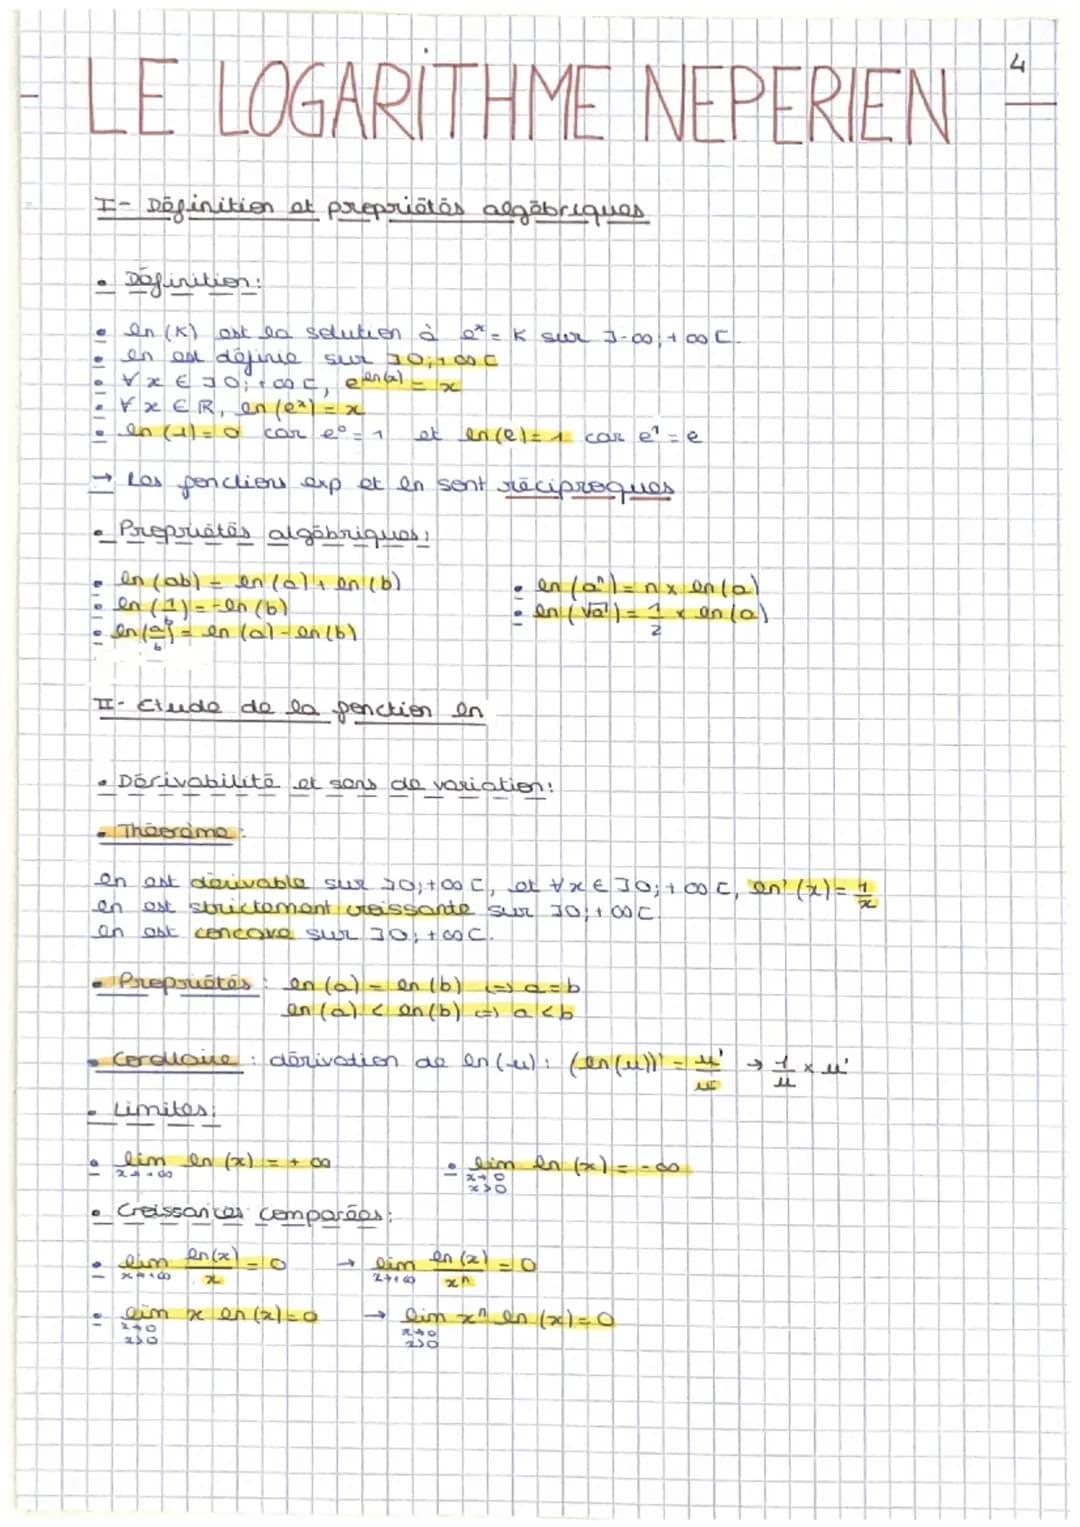 LE LOGARITHME NEPERIEN
4
I- Définition et propriétés algébriques
• Définition:
• ln(K) est la solution à eˣ = K sur ]-∞;+∞[.
• ln est définie sur ]0;+∞[
• ∀x ∈ ]0;+∞[, e^ln(x) = x
• ∀x ∈ R, ln(eˣ) = x
• ln(1) = 0 car e⁰ = 1 et ln(e) = 1 car e¹ = e
→ Les fonctions exp et ln sont réciproques
• Propriétés algébriques:
• ln(ab) = ln(a) + ln(b)
• ln(1/b) = -ln(b)
• ln(a/b) = ln(a) - ln(b)
• ln(aⁿ) = n × ln(a)
• ln(√a) = 1/2 × ln(a)
II- Etude de la fonction ln
• Dérivabilité et sens de variation:
• Théorème:
ln est dérivable sur ]0;+∞[, et ∀x ∈ ]0;+∞[, ln'(x) = 1/x
ln est strictement croissante sur ]0;+∞[
ln est concave sur ]0;+∞[.
• Propriétés: ln(a) = ln(b) ⇔ a=b
ln(a) < ln(b) ⇔ a<b
• Corollaire: dérivation de ln(u): (ln(u))' = u'/u → 1/u × u'
• Limites:
• lim x→+∞ ln(x) = +∞
• lim x→0 x>0 ln(x) = -∞
• Croissances comparées:
• lim x→+∞ ln(x)/x = 0 → lim x→+∞ ln(x)/xⁿ = 0
• lim x→0 x>0 x ln(x) = 0 → lim x→0 x>0 xⁿ ln(x) = 0